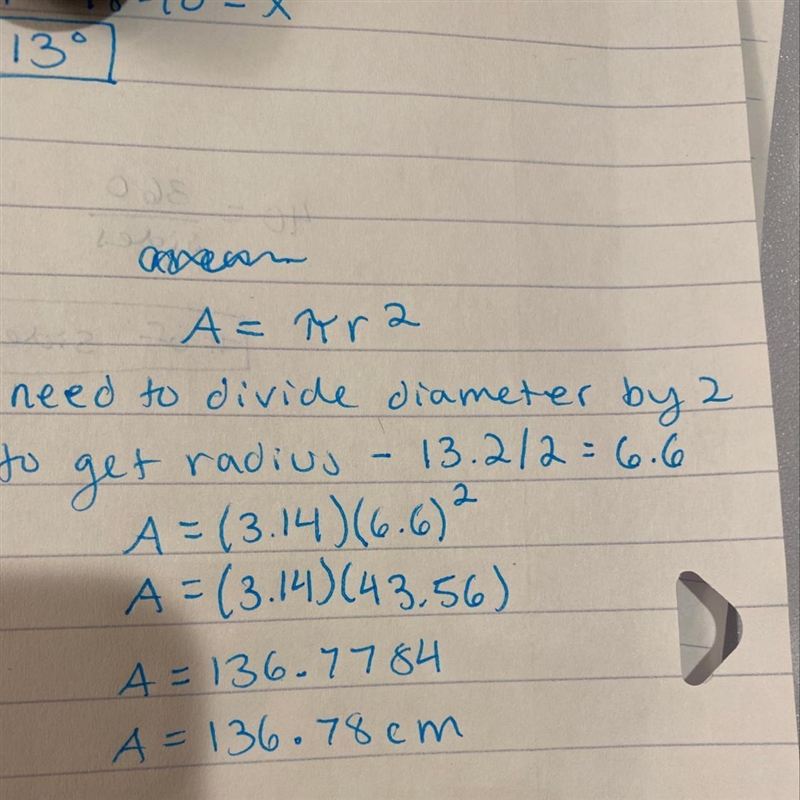 = x
13°
A = πr2
need to divide diameter by 2
to get radius - 13.2/2 = 6.6
A = (3.14)(6.6)²
A = (3.14)(43.56)
A = 136.7784
A = 136.78 cm